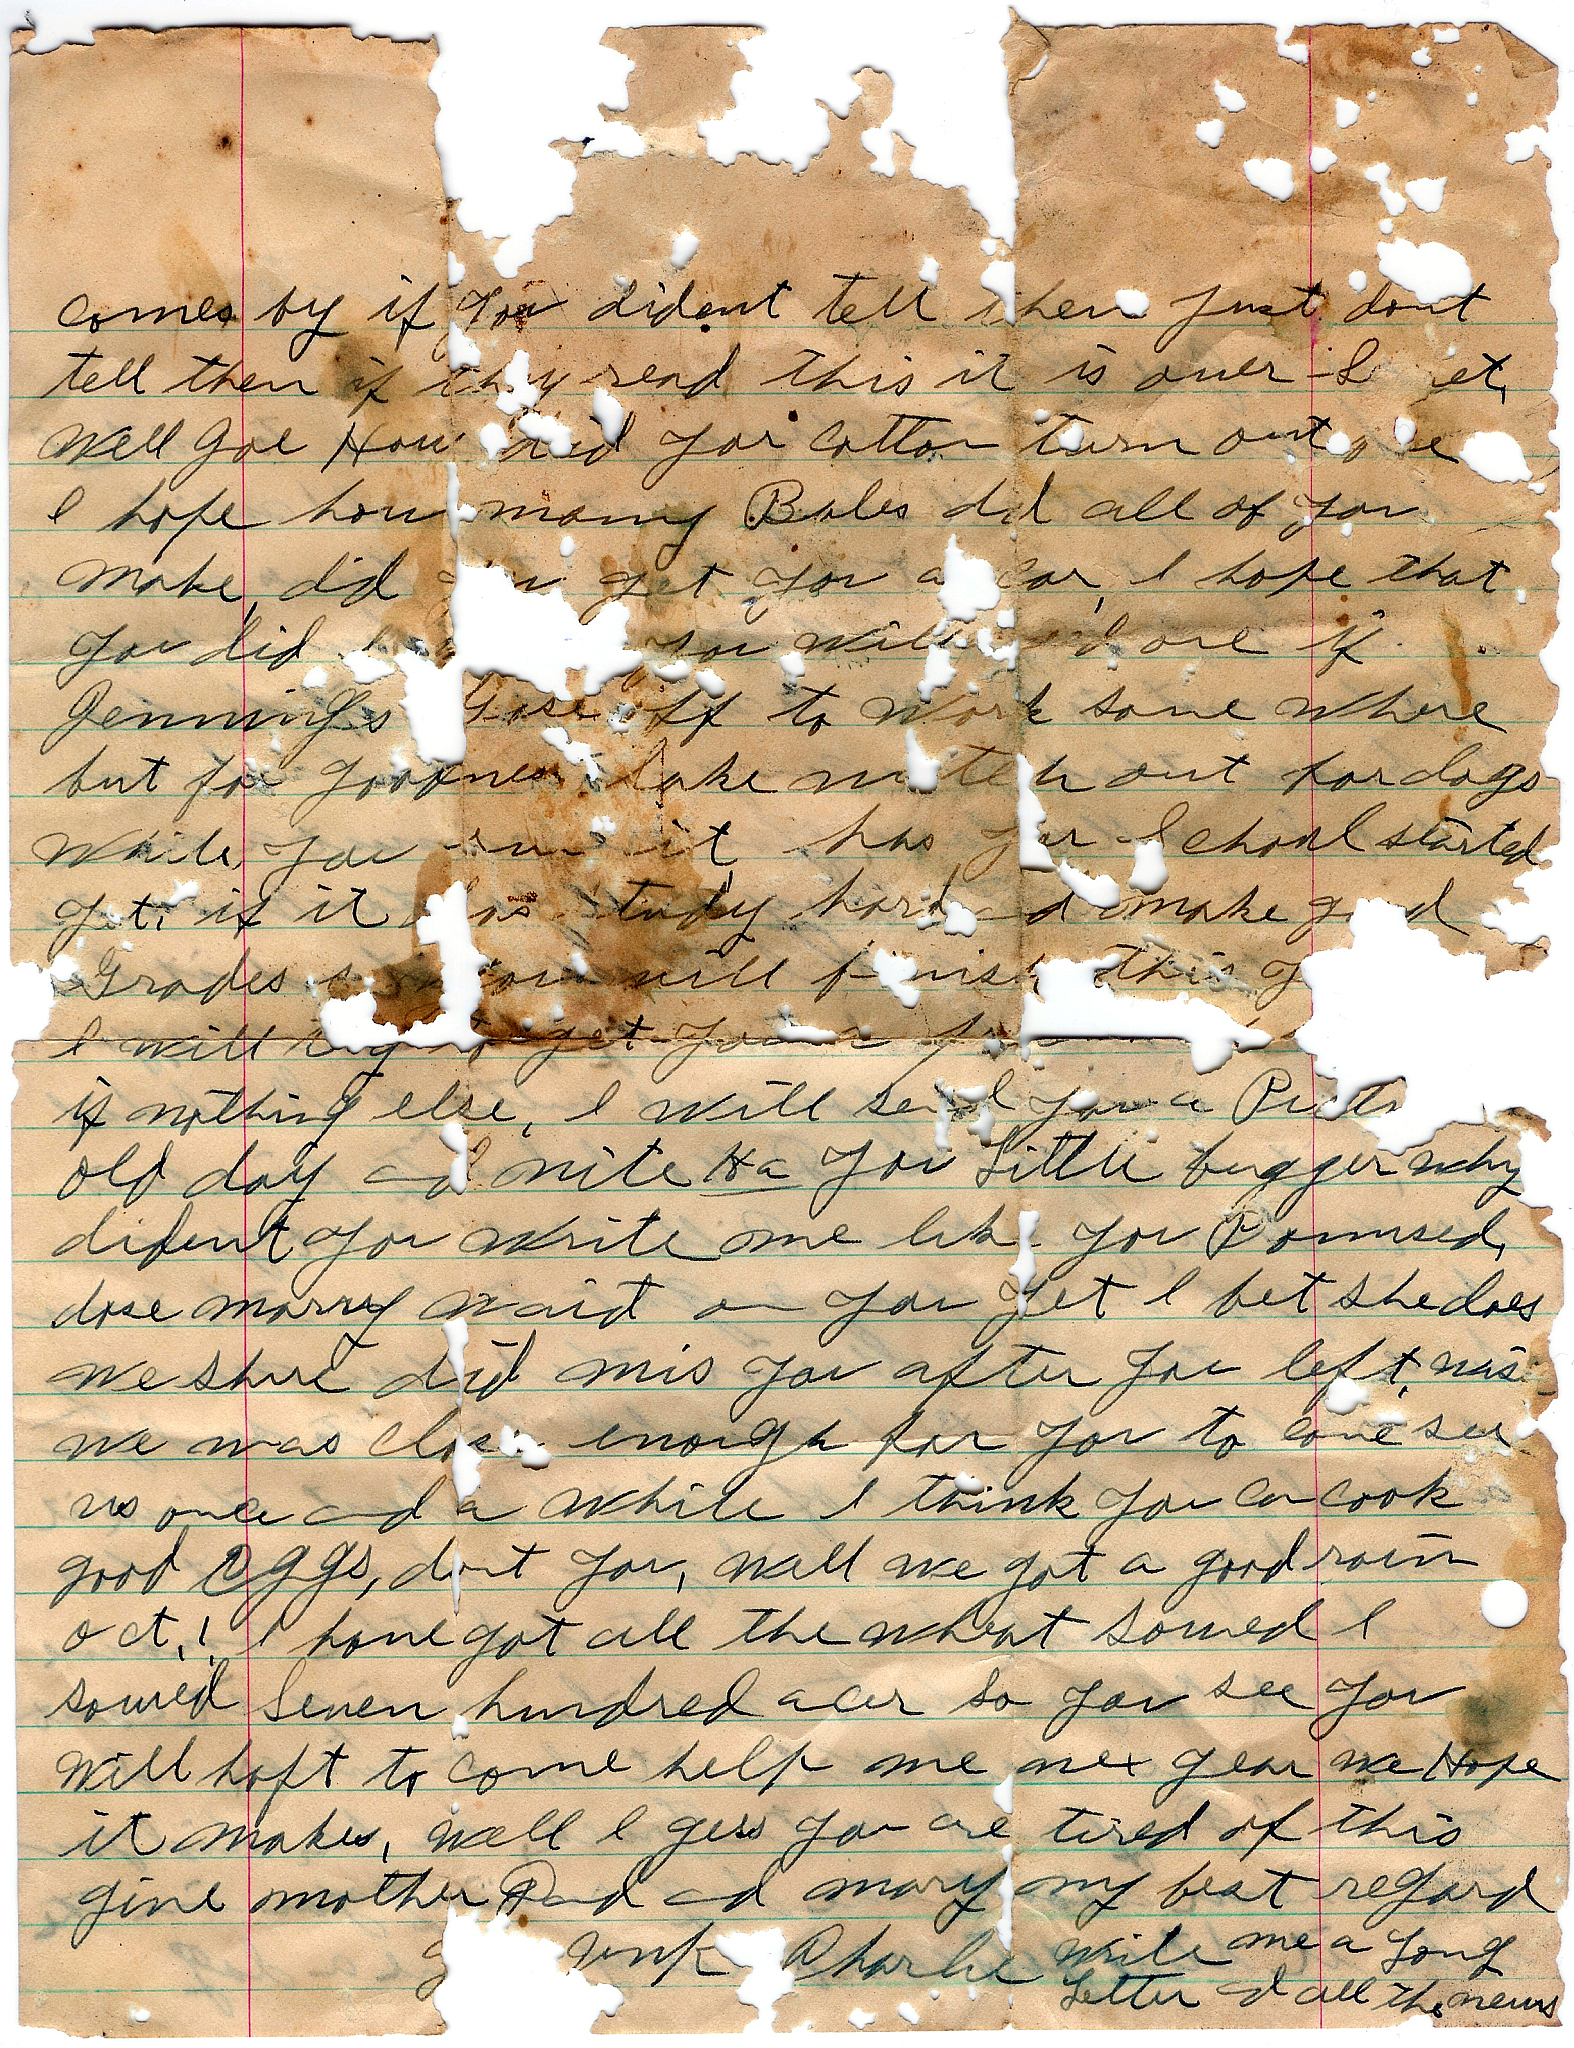 comes by if you dident tell them just dont
tell them if they read this it is over
Well Joe How did your cotton turn out
I hope how many Bales did all of you
make, did you get you a car, I hope that
you did you will one if
Jennings Gose off to work some where
but for goodness sake watch out for dogs
While you run it has your School started
yet, if it has study hard and make good
Grades so you will finish this
I will try to get you a
if nothing else, I will send you a
old day and nite Ha you Little bugger why
dident you write me like you Pomised,
dose marry waid on you yet I bet she does
we shure did mis you after you left, wis
we was close enough for you to come see
us once and a while I think you can cook
good eggs, dont you, Well we got a good rain
oct, 1 I have got all the wheat sowed I
sowed Seven hundred acer so you see you
will haft to come help me nex year we Hope
it makes, Well I gess you are tired of this
give mother Dad and mary my best regard
Unk Charlie write me a long
Letter and all the news